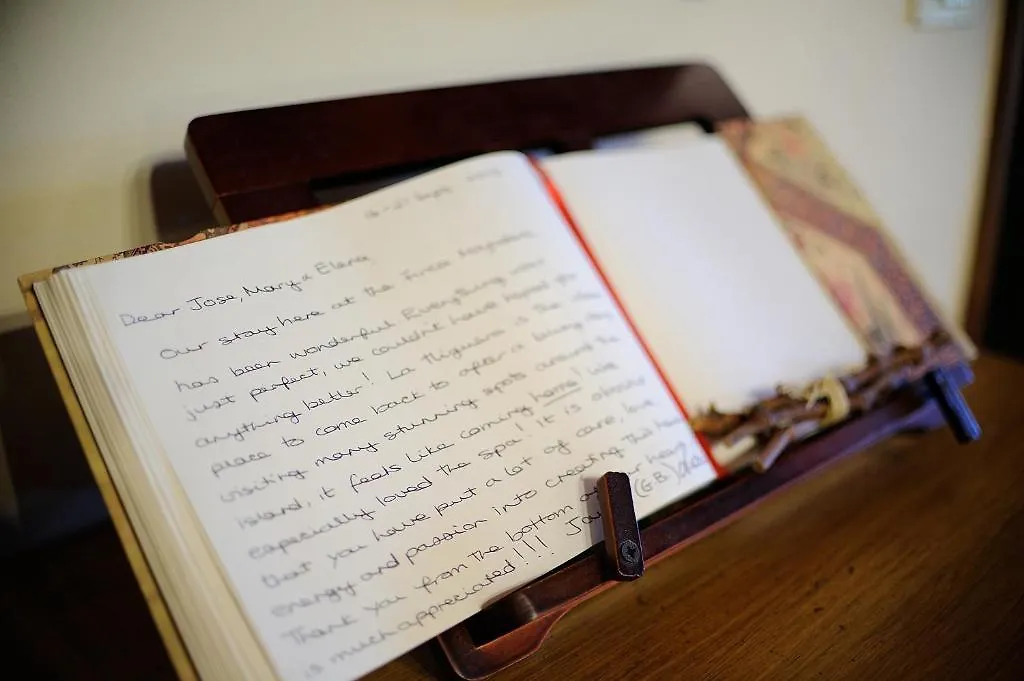 Sept
Dear Jose, Mary & Elena
Our stay here at the Finca
has been wonderful Everything was
just perfect, we couldn't have hoped for
anything better! La Higuera is the
place to come back to after a
visiting many stunning spots around the
island, it feels like coming home! We
especially loved the spa! It is obvious
that you have put a lot of care, love
energy and passion into creating this
Thank you from the bottom of our
is much appreciated!!! (G.B.)